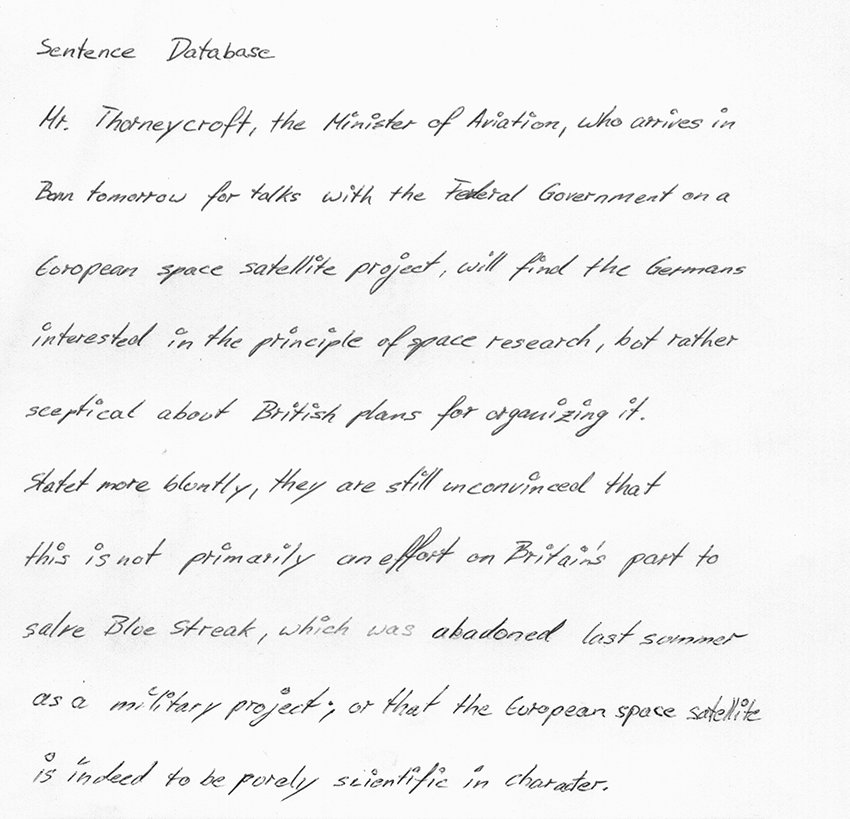 Sentence Database
Mr. Thorneycroft, the Minister of Aviation, who arrives in
Bonn tomorrow for talks with the Federal Government on a
European space satellite project, will find the Germans
interested in the principle of space research, but rather
sceptical about British plans for organizing it.
Statet more bluntly, they are still unconvinced that
this is not primarily an effort on Britain's part to
salve Blue Streak, which was abadoned last summer
as a military project; or that the European space satellite
is indeed to be purely scientific in character.